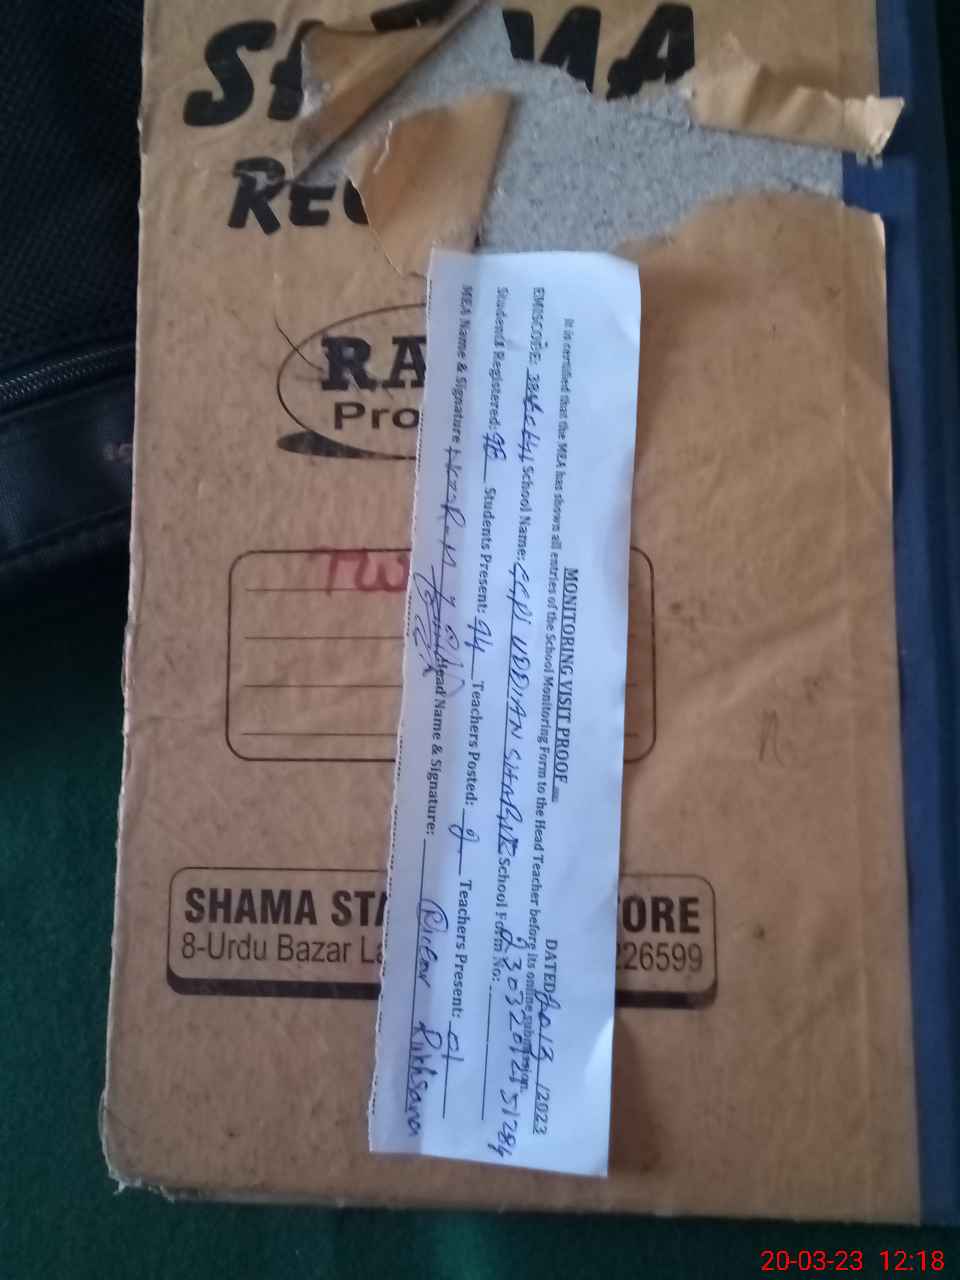 SHAMA
RE
RA
Pro
TW
SHAMA STA ORE
8-Urdu Bazar La 226599
MONITORING VISIT PROOF
DATED 20/3/2023
It is certified that the MEA has shown all entries of the School Monitoring Form to the Head Teacher before its online submission.
EMISCODE: School Name: UDDIAN School Form No:
Students Registered: 98 Students Present: 94 Teachers Posted: 2 Teachers Present: 01
MEA Name & Signature Head Name & Signature: Rukhsana
20-03-23 12:18